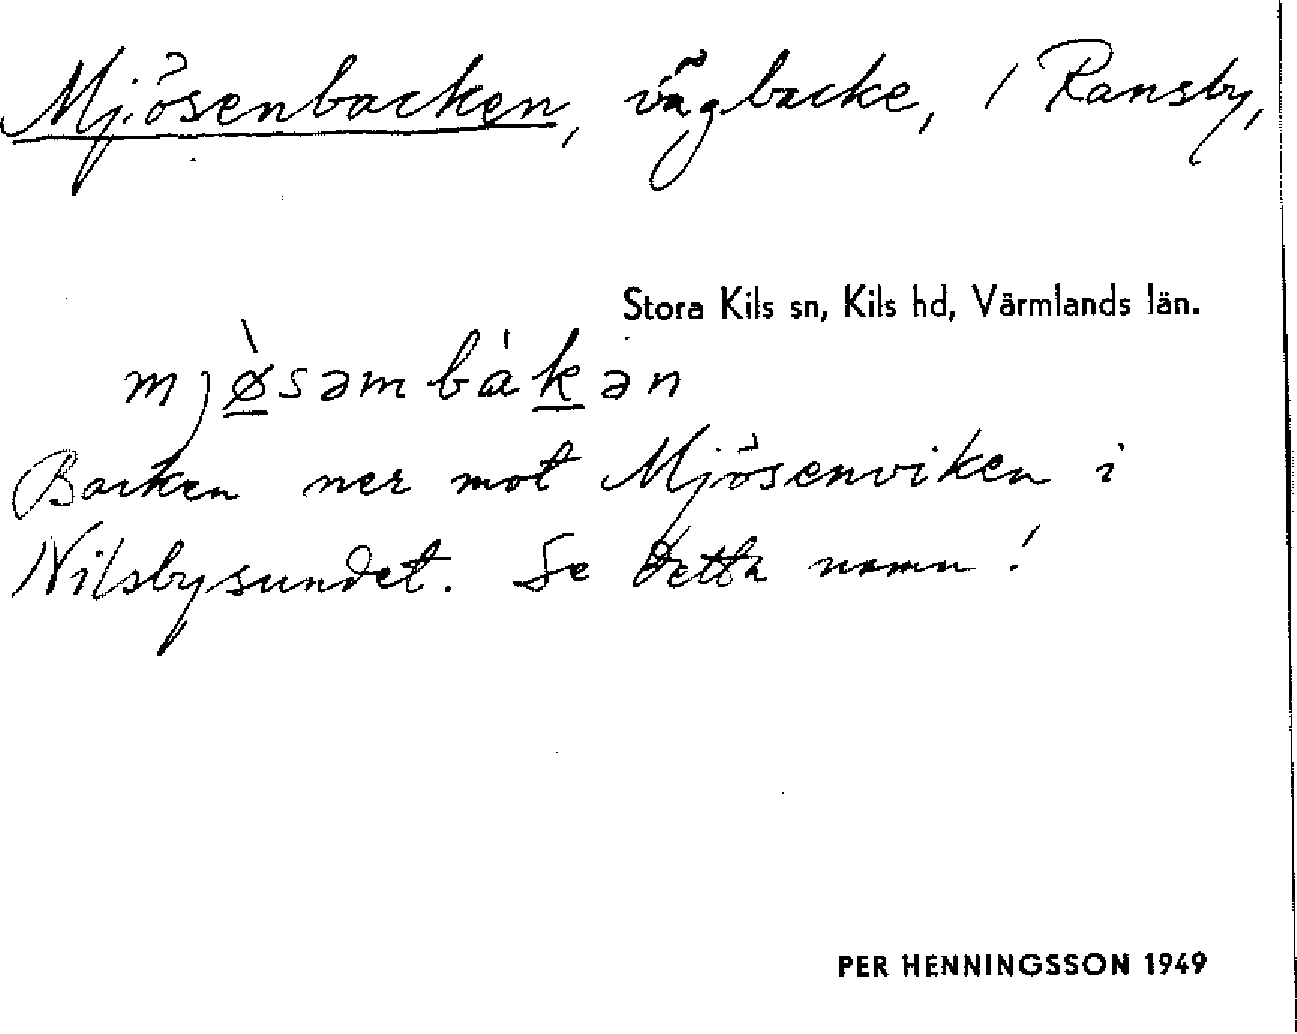 Mjösenbacken, vägbacke, i Ransby,
Stora Kils sn, Kils hd, Värmlands län.
mjø̲̀səmbàk̲ən
Backen ner mot Mjösenviken i
Nilsbysundet. Se detta namn!
PER HENNINGSSON 1949